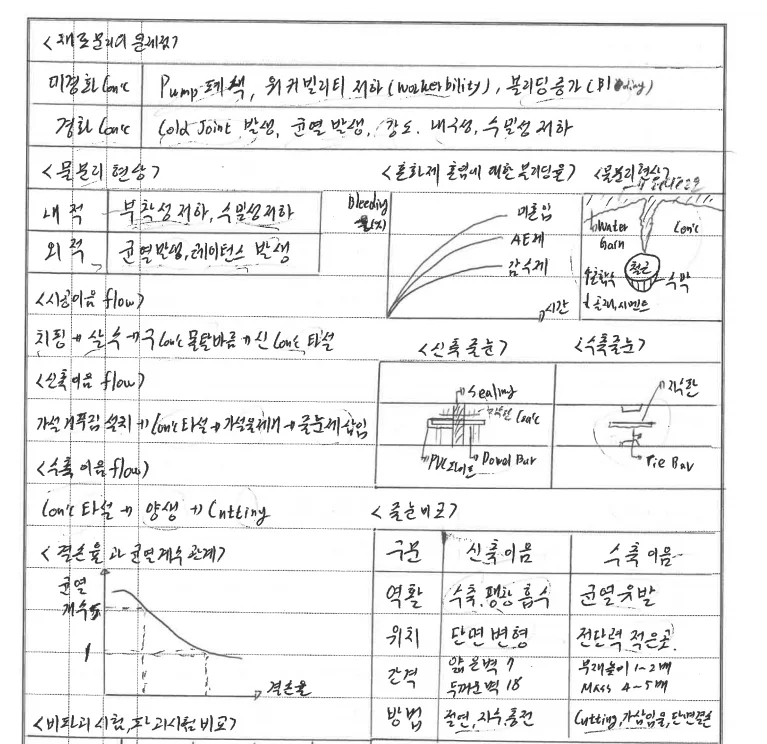 <재료분리의 문제점>
미경화 Con'c Pump 폐색, 워커빌리티 저하(workerbility), 블리딩 증가
경화 Con'c Cold Joint 발생, 균열 발생, 강도. 내구성, 수밀성 저하
<물분리 현상>
내적 부착성 저하, 수밀성저하
외적 균열발생, 레이턴스 발생
<혼화제 혼입에 대한 블리딩율>
Bleeding
율(%)
미혼입
AE제
감수제
시간
<물분리현상>
Water
Gain
Con'c
철근
수막
골재,시멘트
<시공이음 flow>
치핑 → 살수 → 구 Con'c 몰탈바름 → 신 Con'c 타설
<신축이음 flow>
가설거푸집 설치 → Con'c 타설 → 가설물제거 → 줄눈재 삽입
<수축이음 flow>
Con'c 타설 → 양생 → Cutting
<신축줄눈>
Sealing
Con'c
Dowel Bar
<수축줄눈>
Tie Bar
<결손율과 균열계수 관계>
균열
계수
1
결손율
<줄눈비교>
구분 신축이음 수축이음
역활 수축, 팽창 흡수 균열유발
위치 단면 변형 전단력 적은곳.
간격 얇은벽 7 부재높이 1~2배
두꺼운벽 18 MASS 4~5배
방법 절연, 지수, 충전 Cutting, 가삽입물, 단면결손
<비파괴시험, 파괴시험 비교>